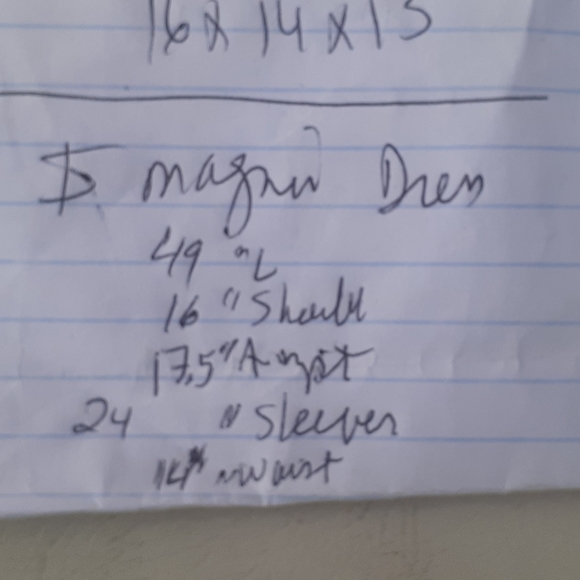 16 x 14 x 15
Dress
49 "L
16 " Should
17.5"
24 " Sleeves
14" Waist